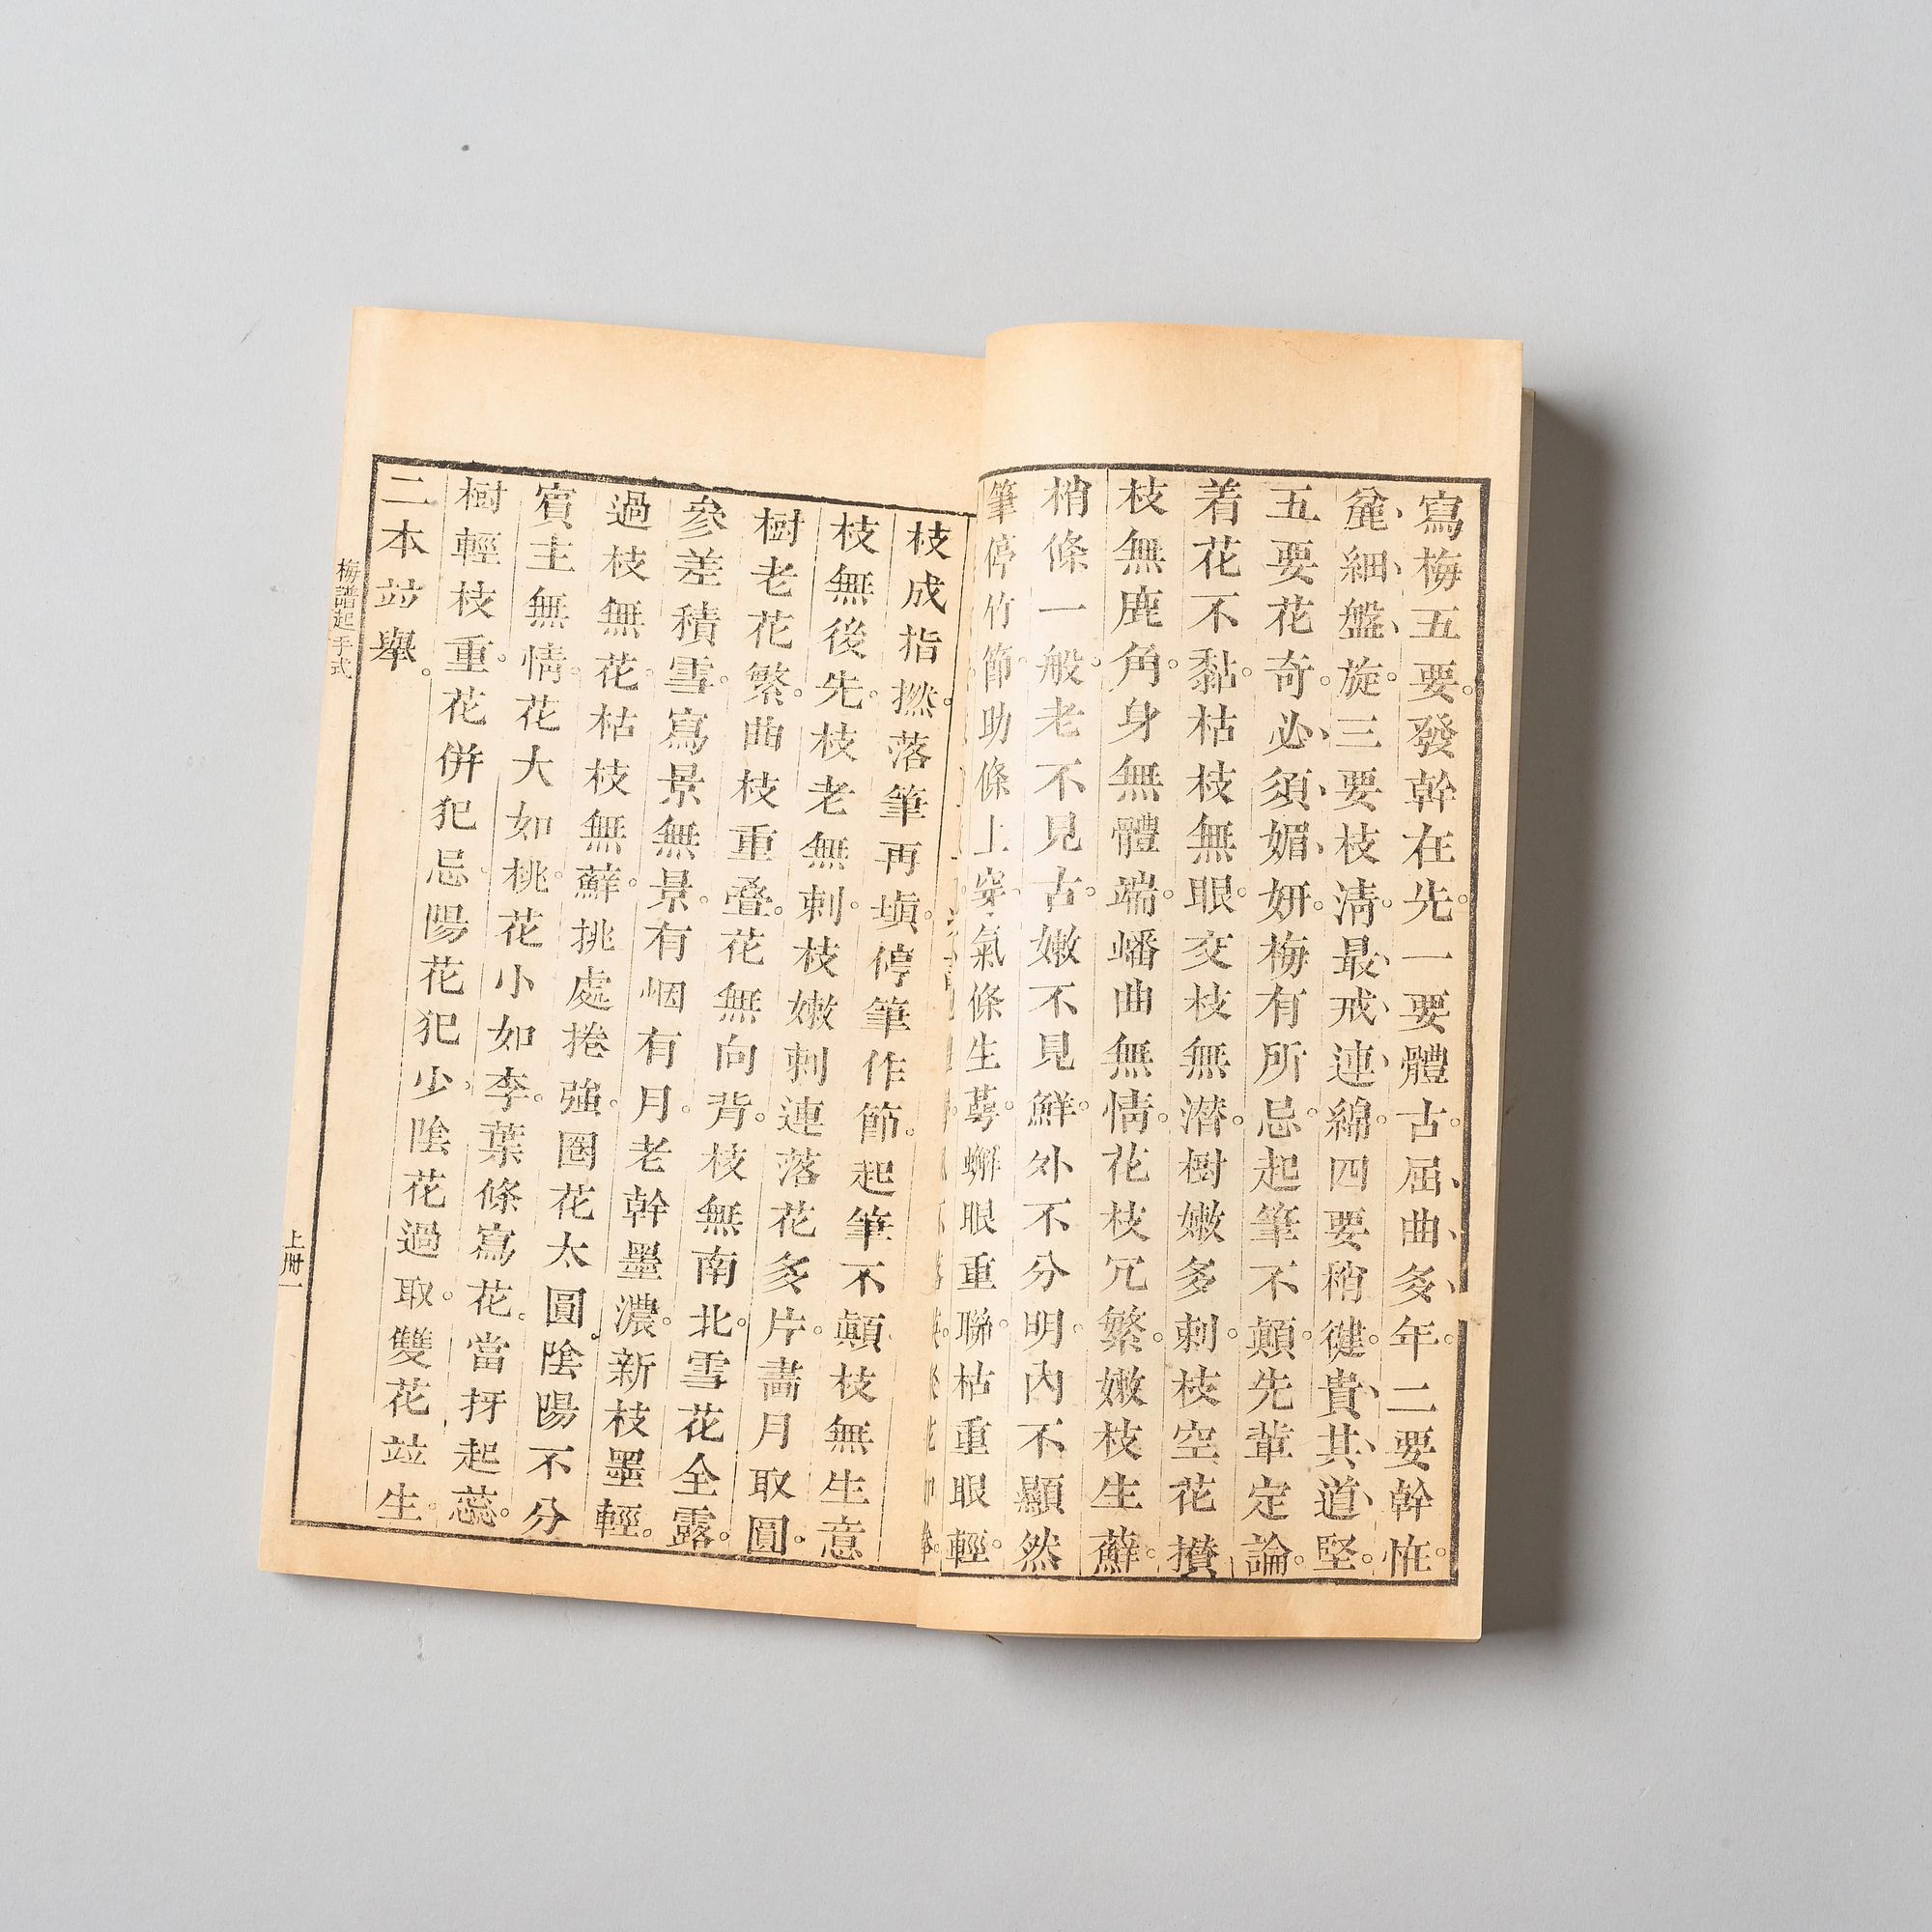 寫梅五要。發幹在先。一要體古。屈、曲、多、年。二要幹恠。
麄、細、盤、旋。三要枝清。最、戒、連、綿。四要稍健。貴、其、道、堅。
五要花奇。必、須、媚、妍。梅有所忌。起筆不顛。先輩定論。
着花不黏。枯枝無眼。交枝無潜。樹嫩多刺。枝空花攢。
枝無鹿角。身無體端。蟠曲無情。花枝冗繁。嫩枝生蘚。
梢條一般。老不見古。嫩不見鮮。外不分明。內不顯然
筆停竹節。助條上穿。氣條生萼。蠏眼重聯。枯重眼輕。
枝成指撚。落筆再塡。停筆作節。起筆不顛。枝無生意
枝無後先。枝老無刺。枝嫩刺連。落花多片。畵月取圓。
樹老花繁。曲枝重叠。花無向背。枝無南北。雪花全露。
參差積雪。寫景無景。有烟有月。老幹墨濃。新枝墨輕。
過枝無花。枯枝無蘚。挑處捲強。圈花太圓。陰陽不分
賓主無情。花大如桃。花小如李。葉條寫花。當枒起蕊。
樹輕枝重。花併犯忌。陽花犯少。陰花過取。雙花竝生。
二本竝舉。
梅譜起手式
上册一